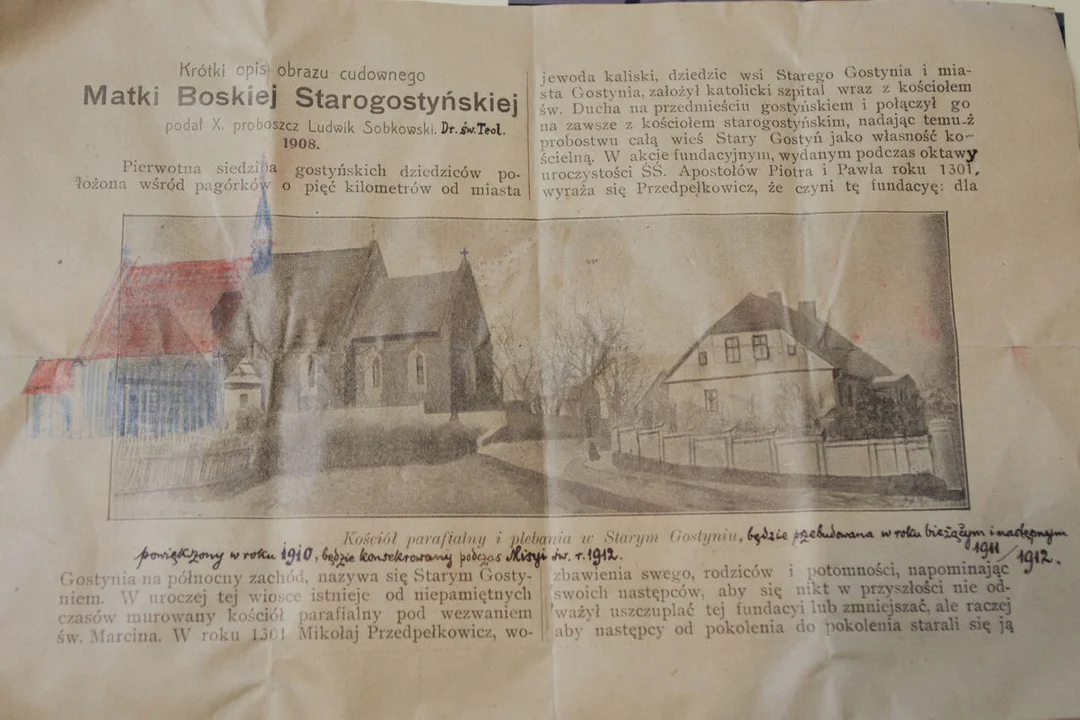 Krótki opis obrazu cudownego
Matki Boskiej Starogostyńskiej
podał X. proboszcz Ludwik Sobkowski. Dr. św. Teol.
1908.
Pierwotna siedziba gostyńskich dziedziców po-
łożona wśród pagórków o pięć kilometrów od miasta
jewoda kaliski, dziedzic wsi Starego Gostynia i mia-
sta Gostynia, założył katolicki szpital wraz z kościołem
św. Ducha na przedmieściu gostyńskiem i połączył go
na zawsze z kościołem starogostyńskim, nadając temu-ż
probostwu całą wieś Stary Gostyń jako własność ko-
ścielną. W akcie fundacyjnym, wydanym podczas oktawy
uroczystości ŚŚ. Apostołów Piotra i Pawła roku 1301,
wyraża się Przedpełkowicz, że czyni tę fundacyę: dla
Kościół parafialny i plebania w Starym Gostyniu, będzie przebudowana w roku bieżącym i następnym
1911/1912.
powiększony w roku 1910, będzie konsekrowany podczas Misyi św. r. 1912.
Gostynia na północny zachód, nazywa się Starym Gosty-
niem. W uroczej tej wiosce istnieje od niepamiętnych
czasów murowany kościół parafialny pod wezwaniem
św. Marcina. W roku 1301 Mikołaj Przedpełkowicz, wo-
zbawienia swego, rodziców i potomności, napominając
swoich następców, aby się nikt w przyszłości nie od-
ważył uszczuplać tej fundacyi lub zmniejszać, ale raczej
aby następcy od pokolenia do pokolenia starali się ją